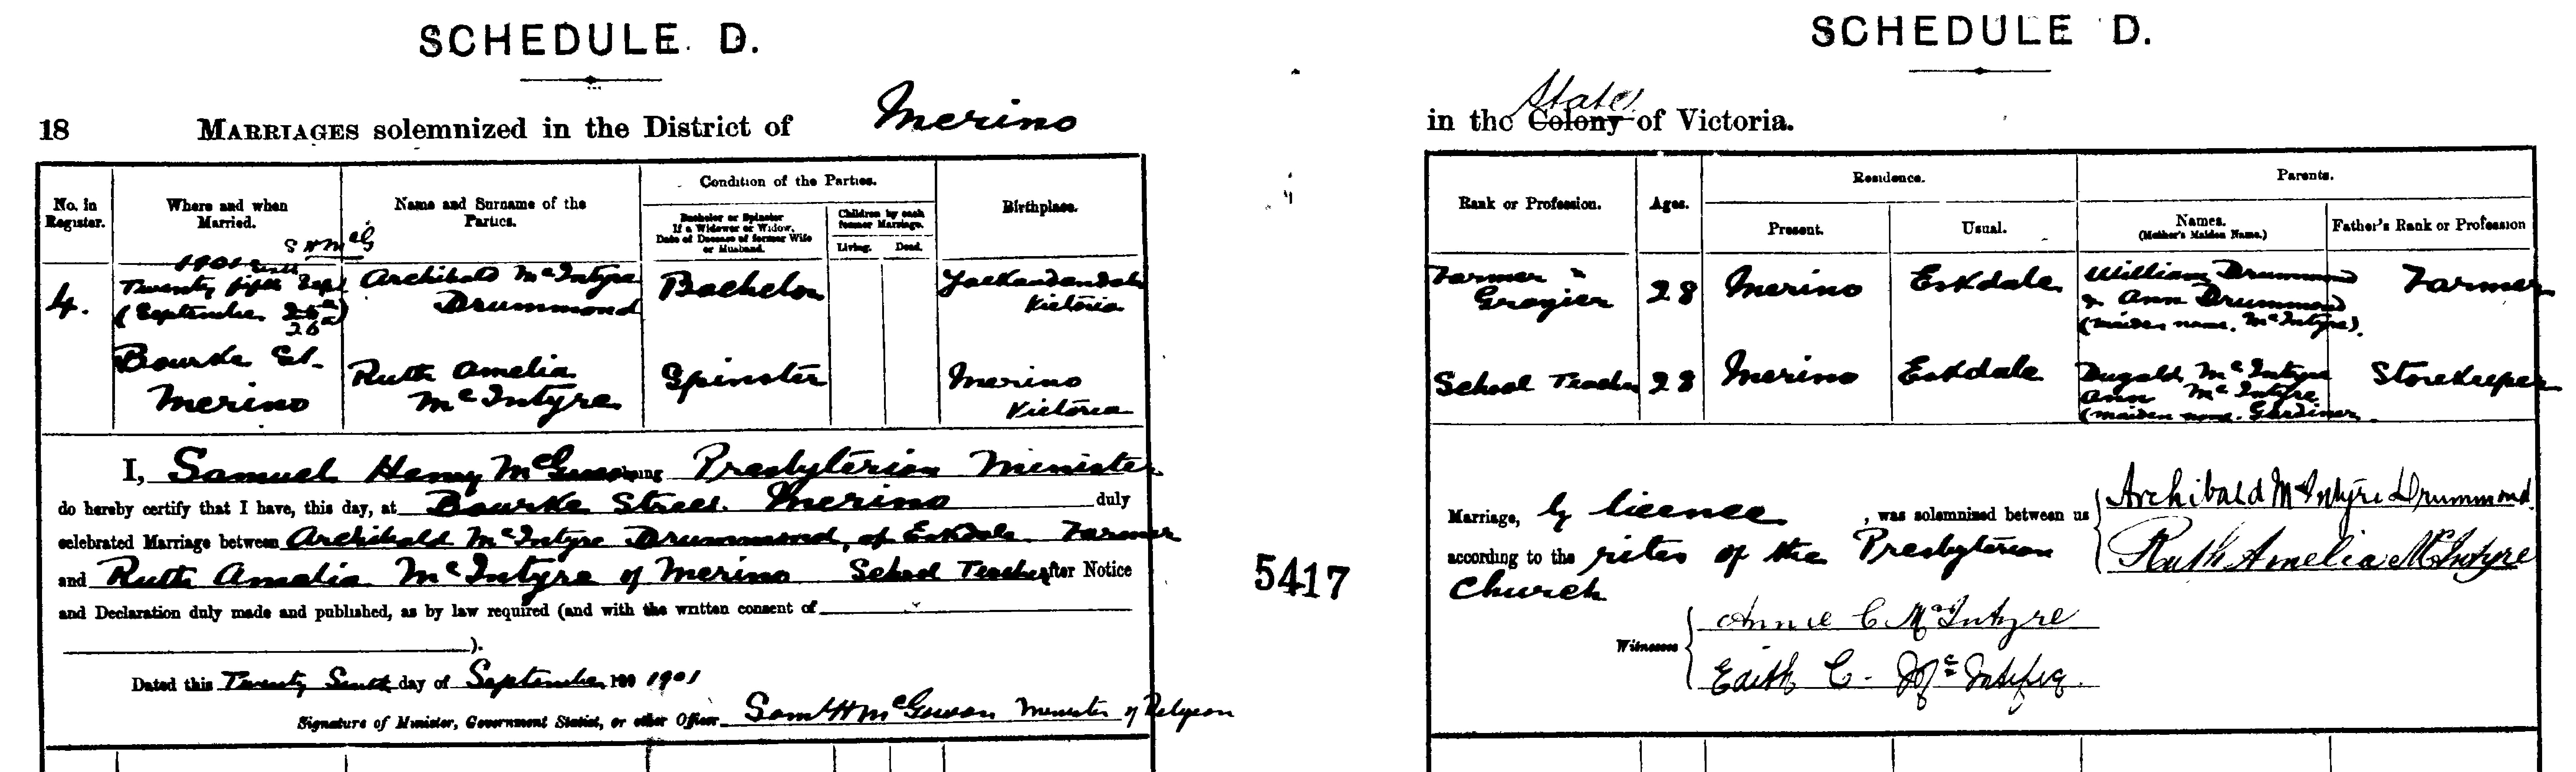 SCHEDULE. D.
18 MARRIAGES solemnized in the District of Merino
No. in Register.
Where and when Married.
Name and Surname of the Parties.
Condition of the Parties.
Bachelor or Spinster
If a Widower or Widow,
Date of Decease of former Wife
or Husband.
Children by each former Marriage.
Living. Dead.
Birthplace.
S H McG
4.
1901
Twenty fifth Sept
(September 25th
26th)
Bourke St.
Merino
Archibald McIntyre
Drummond
Bachelor
Yackandandah
Victoria
Ruth Amelia
McIntyre
Spinster
Merino
Victoria
I, Samuel Henry McGowan being Presbyterian Minister
do hereby certify that I have, this day, at Bourke Street Merino duly
celebrated Marriage between Archibald McIntyre Drummond, of Eskdale Farmer
and Ruth Amelia McIntyre of Merino School Teacher after Notice
and Declaration duly made and published, as by law required (and with the written consent of
).
Dated this Twenty Sixth day of September 190 1901
Signature of Minister, Government Statist, or other Officer Saml H McGowan Minister of Religion
5417
SCHEDULE D.
State
in the Colony of Victoria.
Rank or Profession.
Ages.
Residence.
Present. Usual.
Parents.
Names.
(Mother's Maiden Name.)
Father's Rank or Profession
Farmer
Grazier
28
Merino
Eskdale
William Drummond
& Ann Drummond
(maiden name. McIntyre).
Farmer
School Teacher
28
Merino
Eskdale
Dugald McIntyre
Ann McIntyre
(maiden name. Gardiner
Storekeeper
Marriage, by licence, was solemnized between us
according to the rites of the Presbyterian
Church
Archibald McIntyre Drummond
Ruth Amelia McIntyre
Witnesses
Annie C McIntyre
Edith C. McIntyre